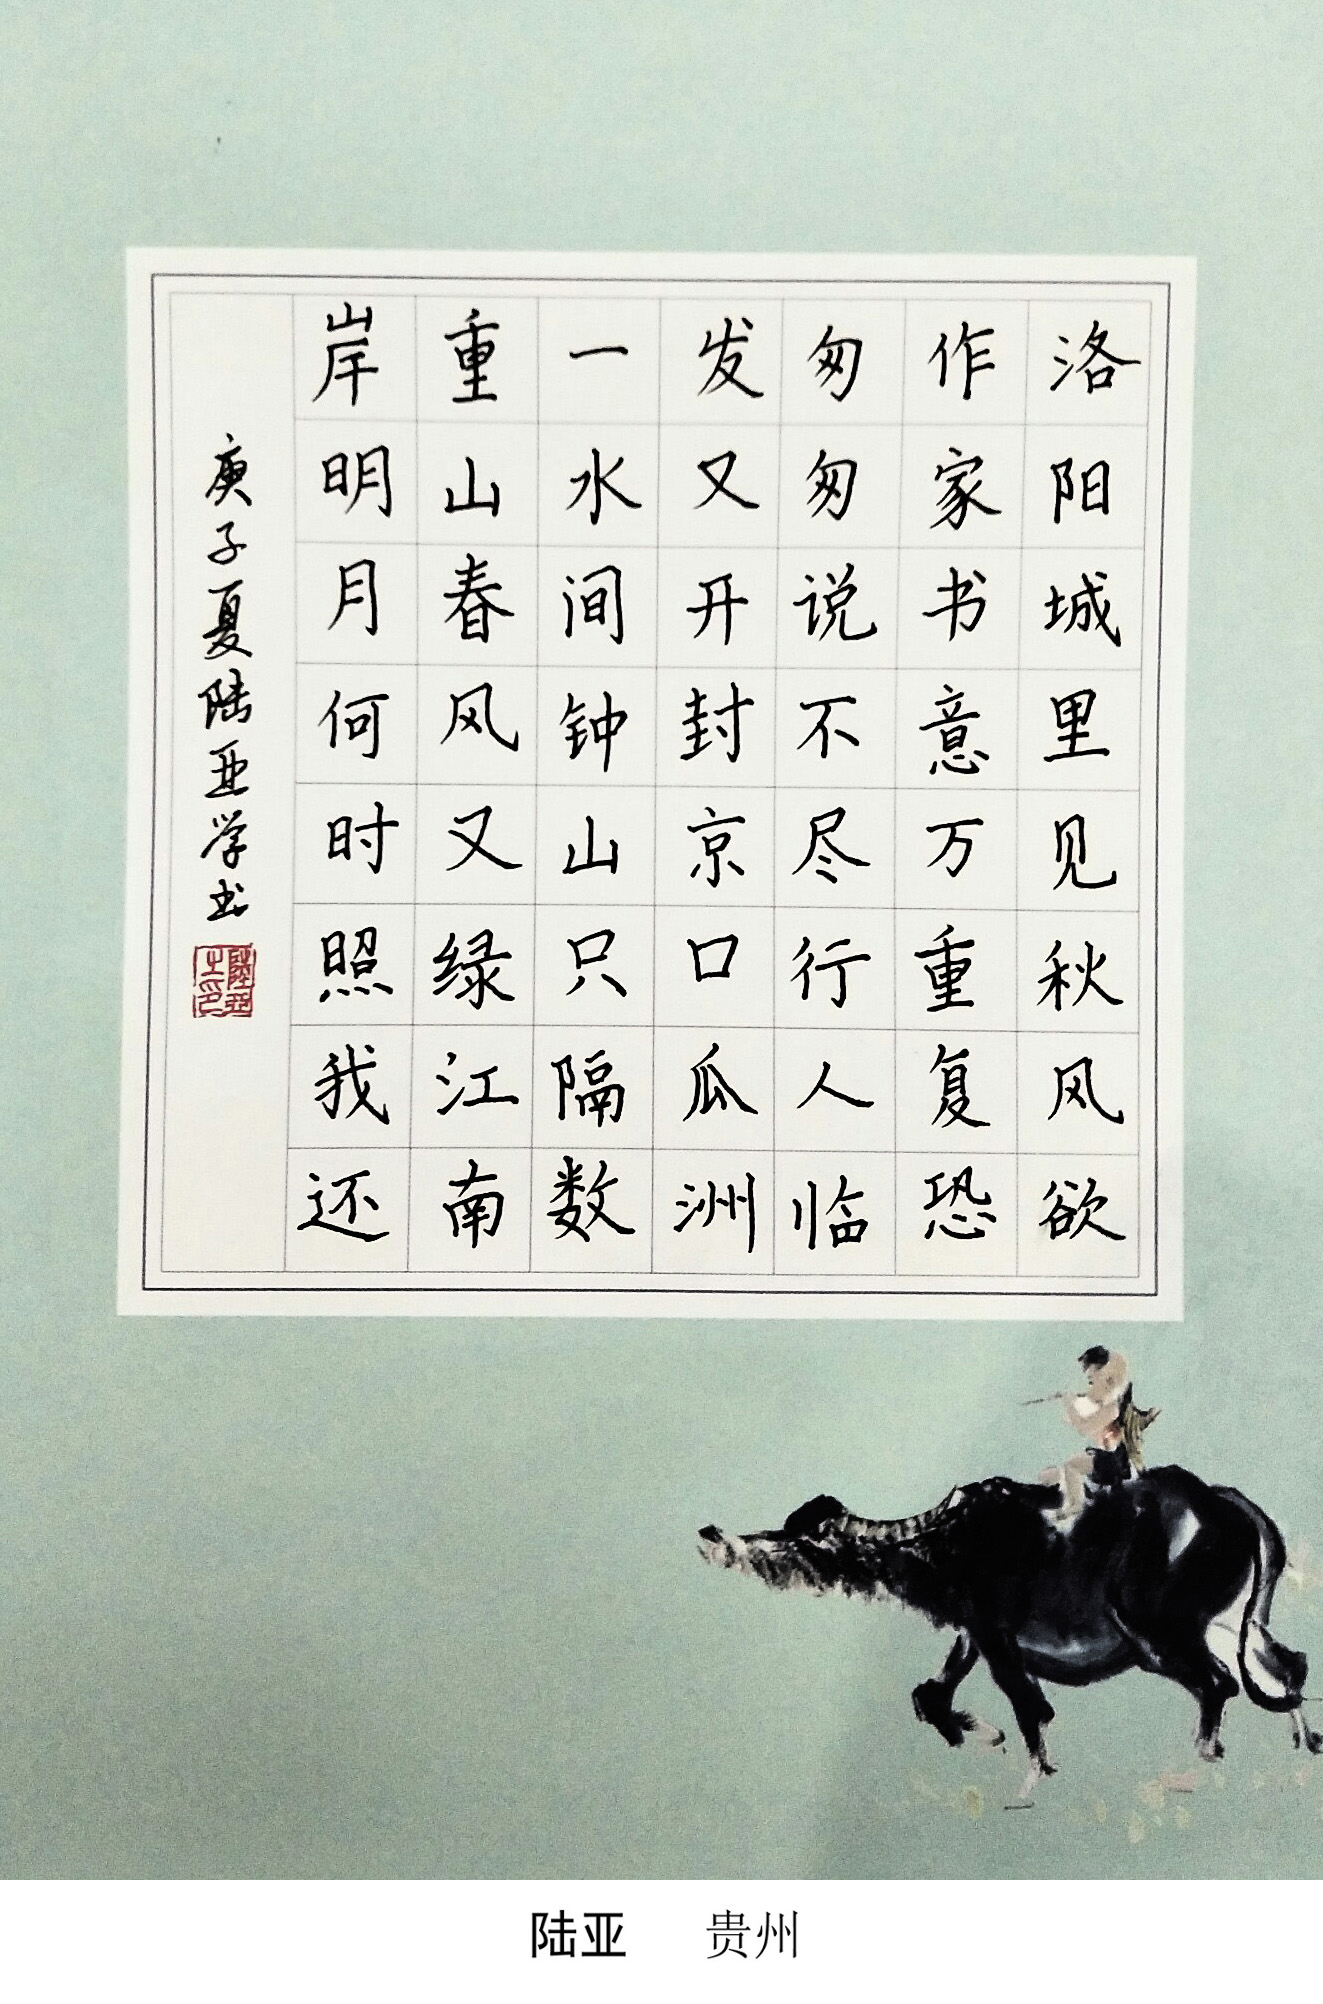 洛阳城里见秋风欲
作家书意万重复恐
匆匆说不尽行人临
发又开封京口瓜洲
一水间钟山只隔数
重山春风又绿江南
岸明月何时照我还
庚子夏陆亚学书
陸亞之印
陆亚 贵州